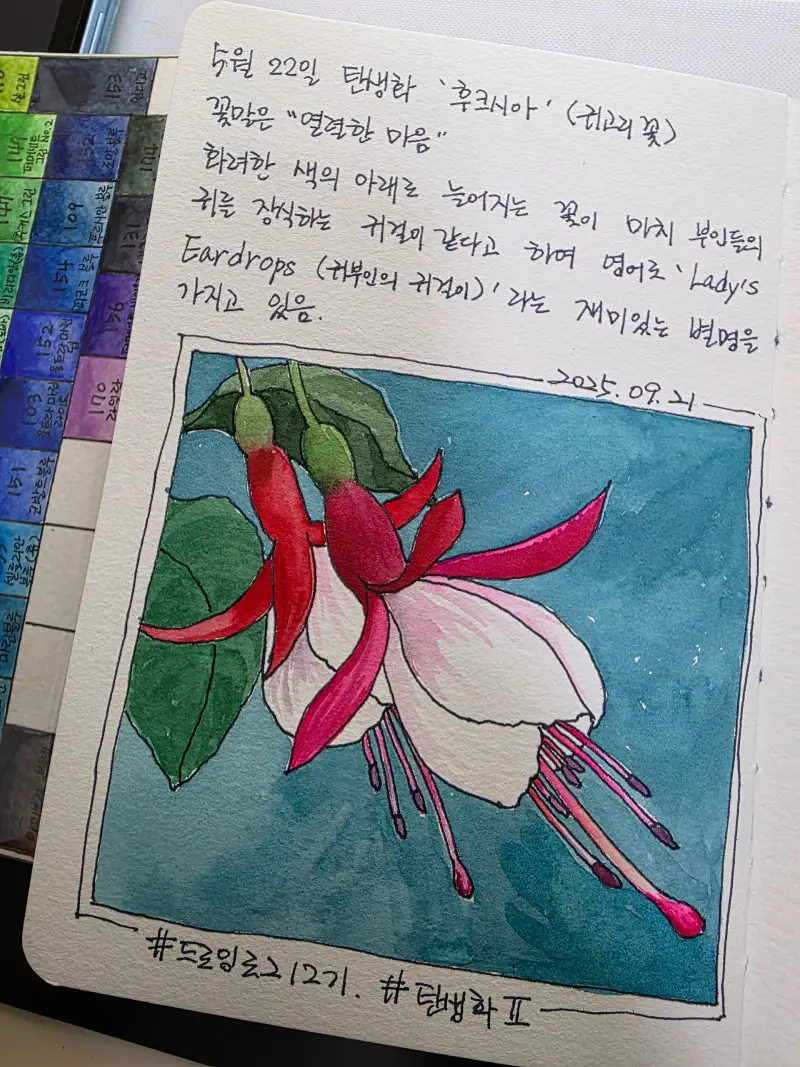 5월 22일 탄생화 '후크시아' (귀고리꽃)
꽃말은 "열렬한 마음"
화려한 색의 아래로 늘어지는 꽃이 마치 부인들의
귀를 장식하는 귀걸이 같다고 하여 영어로 'Lady's
Eardrops (귀부인의 귀걸이)'라는 재미있는 별명을
가지고 있음.
2025.09.21
#드로잉로그12기. #탄생화 Ⅱ
153
152
109
154
152
103
151
147
131
170